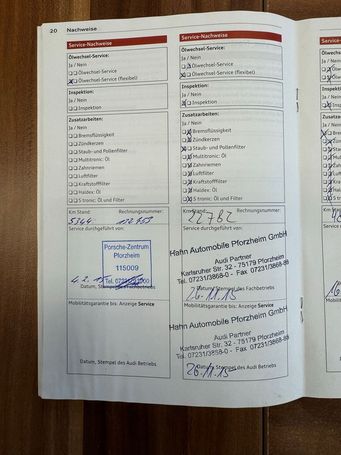 20 Nachweise
Service-Nachweise
Ölwechsel-Service:
Ja / Nein
Ölwechsel-Service
Ölwechsel-Service (flexibel)
Inspektion:
Ja / Nein
Inspektion
Zusatzarbeiten:
Ja / Nein
Bremsflüssigkeit
Zündkerzen
Staub- und Pollenfilter
Multitronic: Öl
Zahnriemen
Luftfilter
Kraftstofffilter
Haldex: Öl
S tronic: Öl und Filter
Km Stand: Rechnungsnummer:
5344
Service durchgeführt von:
Porsche-Zentrum
Pforzheim
115009
4.2.15
Datum, Stempel des Fachbetriebs
Mobilitätsgarantie bis: Anzeige Service
Datum, Stempel des Audi Betriebs
Service-Nachweise
Ölwechsel-Service:
Ja / Nein
Ölwechsel-Service
Ölwechsel-Service (flexibel)
Inspektion:
Ja / Nein
Inspektion
Zusatzarbeiten:
Ja / Nein
Bremsflüssigkeit
Zündkerzen
Staub- und Pollenfilter
Multitronic: Öl
Zahnriemen
Luftfilter
Kraftstofffilter
Haldex: Öl
S tronic: Öl und Filter
Km Stand: Rechnungsnummer:
22782
Service durchgeführt von:
Hahn Automobile Pforzheim GmbH
Audi Partner
Karlsruher Str. 32 - 75179 Pforzheim
Tel. 07231/3868-0 - Fax 07231/3868-88
26.11.15
Mobilitätsgarantie bis: Anzeige Service
Hahn Automobile Pforzheim GmbH
Audi Partner
Karlsruher Str. 32 - 75179 Pforzheim
Tel. 07231/3868-0 - Fax 07231/3868-88
26.11.15
Datum, Stempel des Audi Betriebs